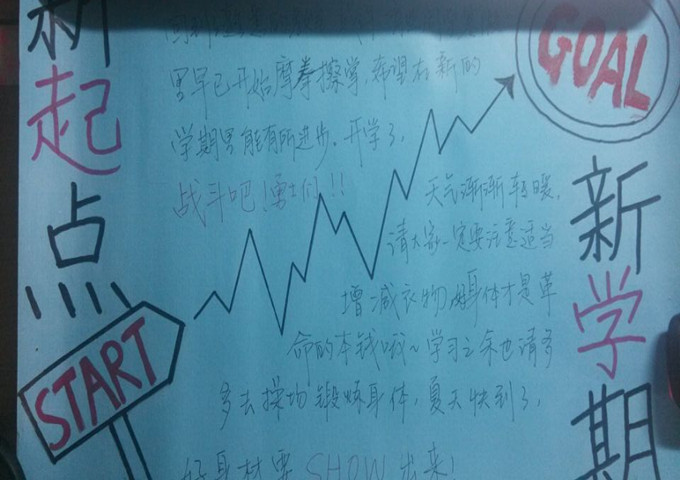 新起点
START
GOAL
新学期
里早已开始摩拳擦掌,希望在新的
学期里能有所进步。开学了,
战斗吧!勇士们!!!
天气渐渐转暖,
请大家一定要注意适当
增减衣物,身体才是革
命的本钱哦~学习之余也请多
多去操场锻炼身体,夏天快到了,
好身材要SHOW出来!